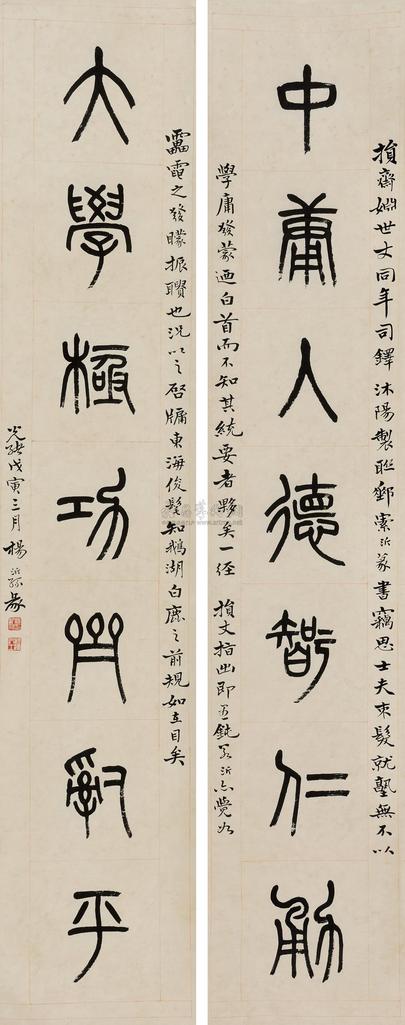 損齋姻世丈同年司鐸沐陽製聯郵索沂篆書竊思士夫束髮就塾無不以
中庸入德智仁勇
學庸發蒙迺白首而不知其統要者夥矣一經 損丈指出即至鈍若沂亦覺如
靁電之發矇振聵也況以之啓牖東海俊髦知鵝湖白鹿之前規如在目矣
大學極功齊治平
光緒戊寅三月楊沂孫篆